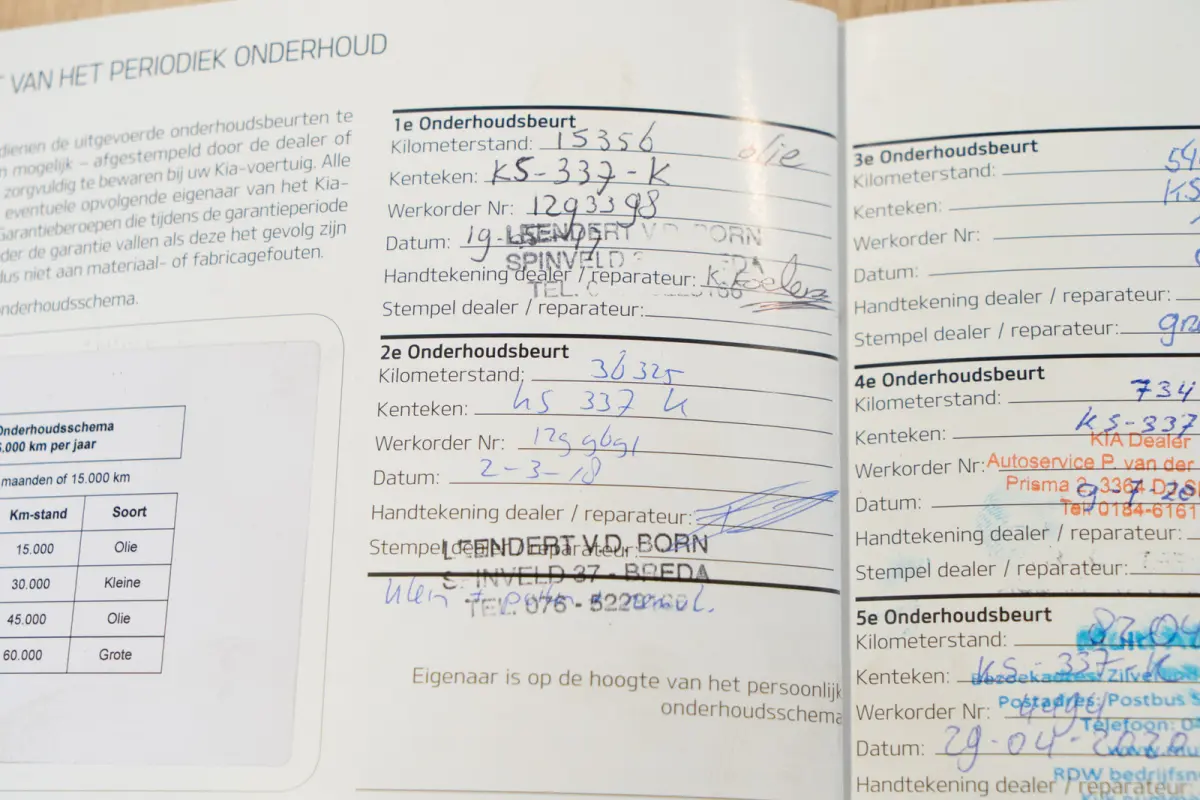 VAN HET PERIODIEK ONDERHOUD
dienen de uitgevoerde onderhoudsbeurten te
mogelijk – afgestempeld door de dealer of
zorgvuldig te bewaren bij uw Kia-voertuig. Alle
eventuele opvolgende eigenaar van het Kia-
Garantieberoepen die tijdens de garantieperiode
der de garantie vallen als deze het gevolg zijn
dus niet aan materiaal- of fabricagefouten.
onderhoudsschema.
Onderhoudsschema
.000 km per jaar
maanden of 15.000 km
Km-stand Soort
15.000 Olie
30.000 Kleine
45.000 Olie
60.000 Grote
1e Onderhoudsbeurt
Kilometerstand: 15356 olie
Kenteken: KS-337-K
Werkorder Nr: 1293398
Datum: 19-
LEENDERT V.D. BORN
SPINVELD
Handtekening dealer / reparateur:
TEL.
Stempel dealer / reparateur:
2e Onderhoudsbeurt
Kilometerstand: 36325
Kenteken: KS 337 K
Werkorder Nr:
Datum: 2-3-18
Handtekening dealer / reparateur:
Stempel dealer / reparateur:
LEENDERT V.D. BORN
SPINVELD 37 - BREDA
TEL. 076 - 5229
Klein +
Eigenaar is op de hoogte van het persoonlijk
onderhoudsschema
3e Onderhoudsbeurt
Kilometerstand: 54
Kenteken: KS
Werkorder Nr:
Datum:
Handtekening dealer / reparateur:
Stempel dealer / reparateur:
4e Onderhoudsbeurt
Kilometerstand: 734
Kenteken: KS-337
KIA Dealer
Werkorder Nr:
Autoservice P. van der
Prisma 2, 3364 D
Datum: 9-7-20
Tel. 0184-6161
Handtekening dealer / reparateur:
Stempel dealer / reparateur:
5e Onderhoudsbeurt
Kilometerstand: 8204
Kenteken: KS-337-K
Bezoekadres: Zilver
Postadres: Postbus
Werkorder Nr:
Telefoon: 0
Datum: 29-04-2020
www.
RDW bedrijfsn
Handtekening dealer / reparateur: